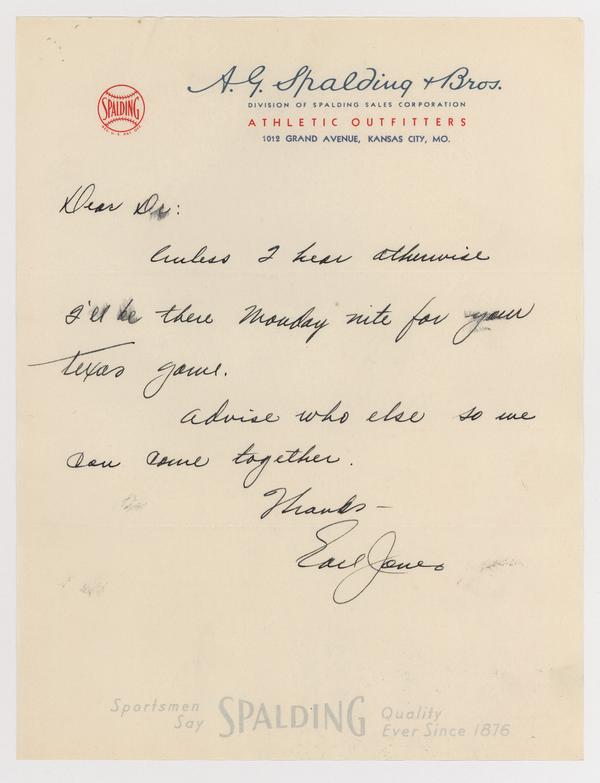 SPALDING
REG. U.S. PAT. OFF.
A. G. Spalding & Bros.
DIVISION OF SPALDING SALES CORPORATION
ATHLETIC OUTFITTERS
1012 GRAND AVENUE, KANSAS CITY, MO.
Dear Dr:
Unless I hear otherwise
I'll be there Monday nite for your
Texas game.
Advise who else so we
can come together.
Thanks -
Earl Jones
Sportsmen Say SPALDING Quality Ever Since 1876